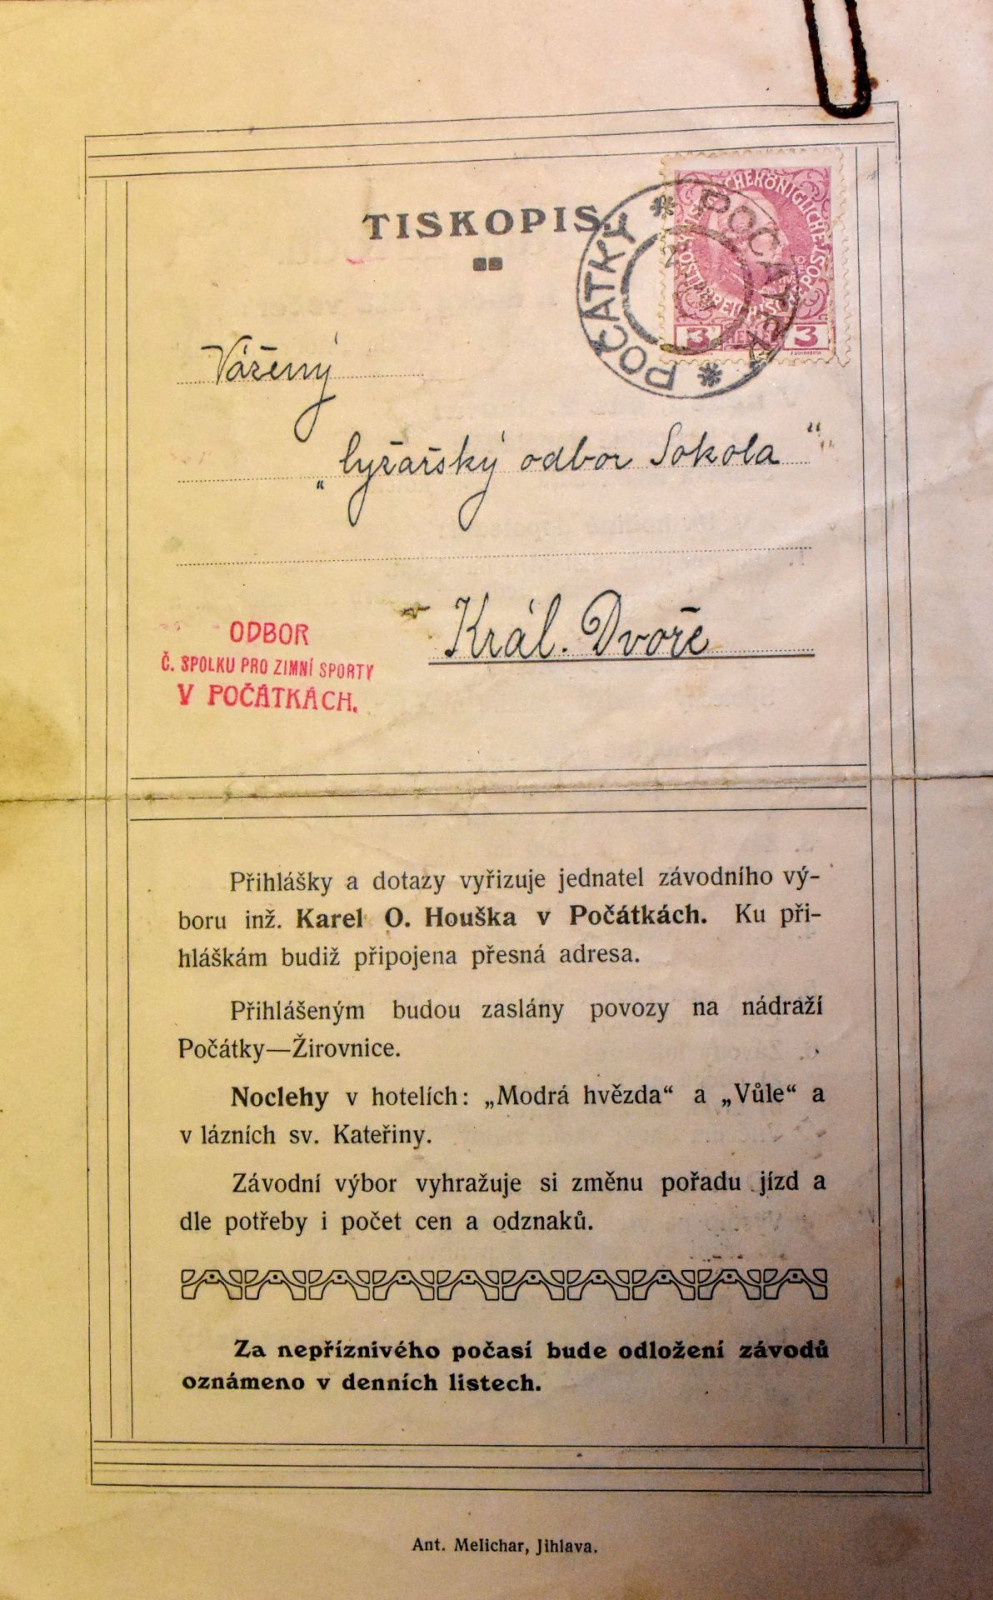 TISKOPIS.
POČÁTKY * POČATEK *
KAISERLICHE KÖNIGLICHE ÖSTERREICHISCHE POST
3 HELLER 3
Vážený
„lyžařský odbor Sokola“
Král. Dvoře
ODBOR
Č. SPOLKU PRO ZIMNÍ SPORTY
V POČÁTKÁCH.
Přihlášky a dotazy vyřizuje jednatel závodního vý-
boru inž. Karel O. Houška v Počátkách. Ku při-
hláškám budiž připojena přesná adresa.
Přihlášeným budou zaslány povozy na nádraží
Počátky—Žirovnice.
Noclehy v hotelích: „Modrá hvězda“ a „Vůle“ a
v lázních sv. Kateřiny.
Závodní výbor vyhražuje si změnu pořadu jízd a
dle potřeby i počet cen a odznaků.
Za nepříznivého počasí bude odložení závodů
oznámeno v denních listech.
Ant. Melichar, Jihlava.